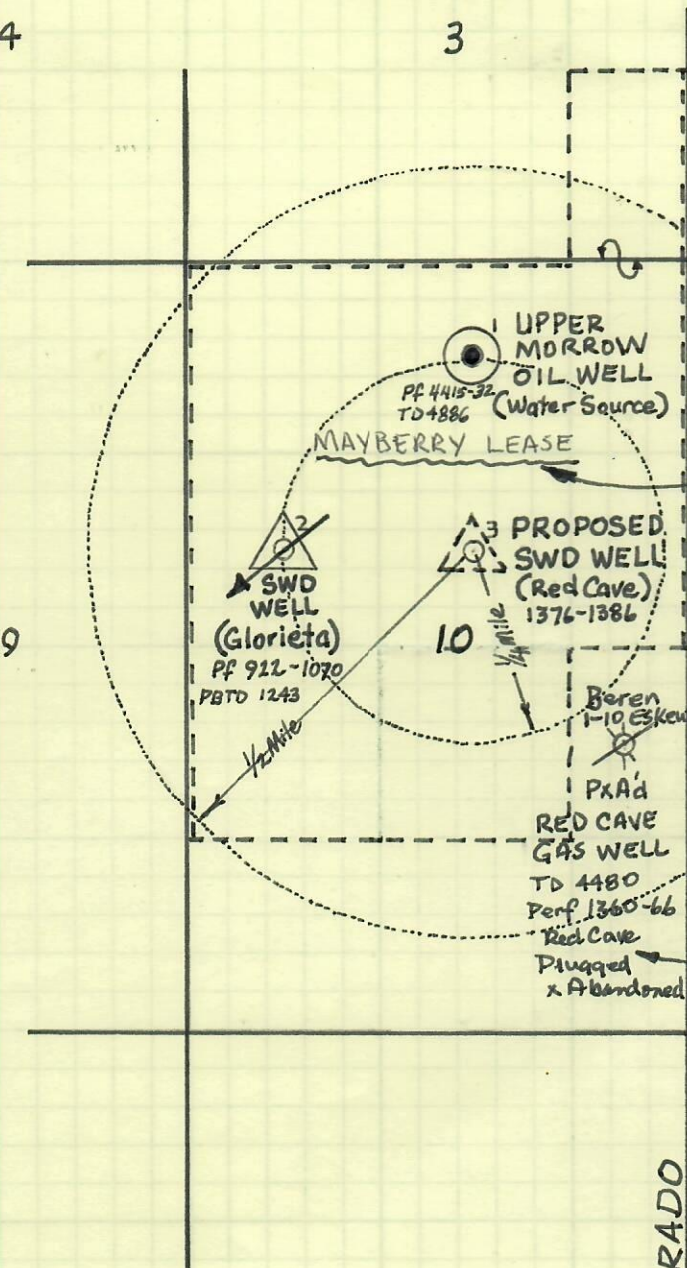 4
3
1 UPPER
MORROW
OIL WELL
(Water Source)
Pf 4415-32
TD 4886
MAYBERRY LEASE
2
SWD
WELL
(Glorieta)
Pf 922-1070
PBTD 1243
3 PROPOSED
SWD WELL
(Red Cave)
1376-1386
9
10
1/4 mile
1/2 Mile
Beren
1-10 Eskew
PxA'd
RED CAVE
GAS WELL
TD 4480
Perf 1360-66
Red Cave
Plugged
x Abandoned
RADO